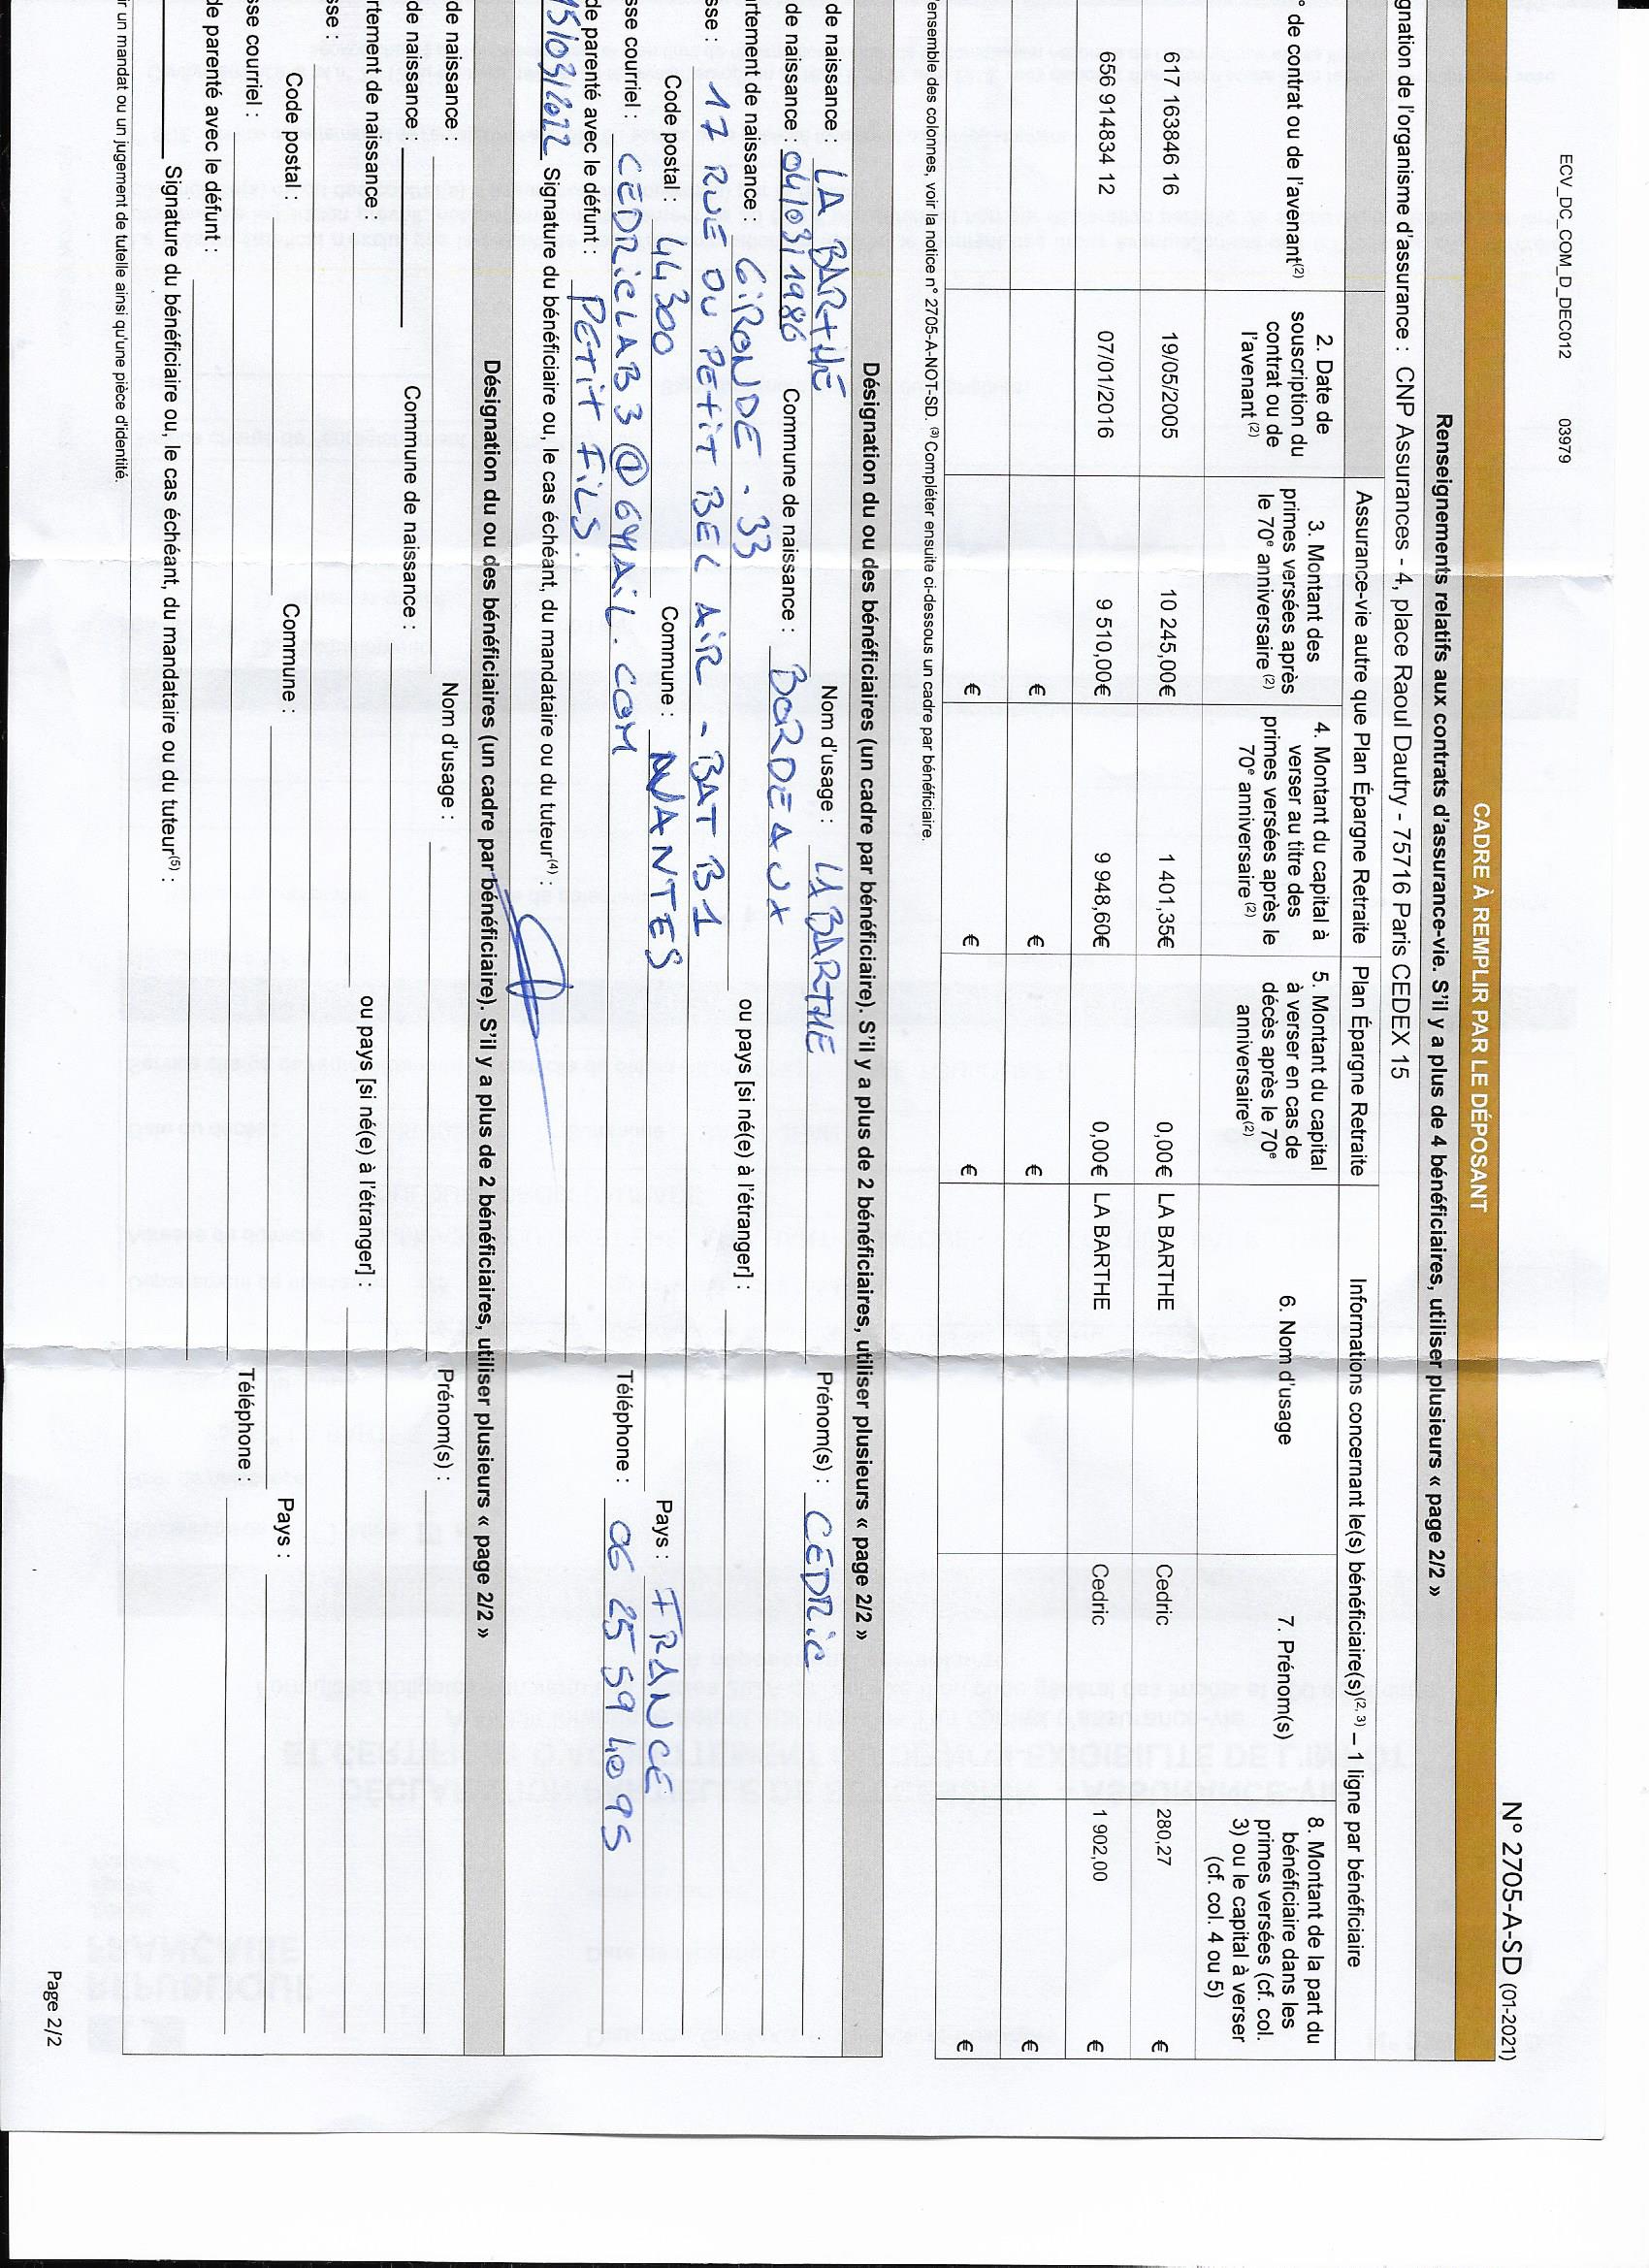 ECV_DC_COM_D_DEC012 03979
N° 2705-A-SD (01-2021)
CADRE À REMPLIR PAR LE DÉPOSANT
Renseignements relatifs aux contrats d'assurance-vie. S'il y a plus de 4 bénéficiaires, utiliser plusieurs « page 2/2 »
gnation de l'organisme d'assurance : CNP Assurances - 4, place Raoul Dautry - 75716 Paris CEDEX 15
Assurance-vie autre que Plan Épargne Retraite Plan Épargne Retraite Informations concernant le(s) bénéficiaire(s)(2, 3) – 1 ligne par bénéficiaire
° de contrat ou de l'avenant(2)
2. Date de souscription du contrat ou de l'avenant(2)
3. Montant des primes versées après le 70e anniversaire(2)
4. Montant du capital à verser au titre des primes versées après le 70e anniversaire (2)
5. Montant du capital à verser en cas de décès après le 70e anniversaire(2)
6. Nom d'usage
7. Prénom(s)
8. Montant de la part du bénéficiaire dans les primes versées (cf. col. 3) ou le capital à verser (cf. col. 4 ou 5)
617 163846 16 19/05/2005 10 245,00€ 1 401,35€ 0,00€ LA BARTHE Cedric 280,27 €
656 914834 12 07/01/2016 9 510,00€ 9 948,60€ 0,00€ LA BARTHE Cedric 1 902,00 €
€ € € €
€ € € €
'ensemble des colonnes, voir la notice n° 2705-A-NOT-SD. (3) Compléter ensuite ci-dessous un cadre par bénéficiaire.
Désignation du ou des bénéficiaires (un cadre par bénéficiaire). S'il y a plus de 2 bénéficiaires, utiliser plusieurs « page 2/2 »
de naissance : LA BARTHE Nom d'usage : LA BARTHE Prénom(s) : CEDRIC
de naissance : 04/03/1986 Commune de naissance : BORDEAUX
rtement de naissance : GIRONDE - 33 ou pays [si né(e) à l'étranger] :
sse : 17 RUE DU PETIT BEL AIR - BAT B1
Code postal : 44300 Commune : NANTES Pays : FRANCE
sse courriel : CEDRICLAB3@GMAIL.COM Téléphone : 06 25 59 40 95
de parenté avec le défunt : PETIT FILS.
15/03/2022 Signature du bénéficiaire ou, le cas échéant, du mandataire ou du tuteur(4) :
Désignation du ou des bénéficiaires (un cadre par bénéficiaire). S'il y a plus de 2 bénéficiaires, utiliser plusieurs « page 2/2 »
de naissance : Nom d'usage : Prénom(s) :
de naissance : Commune de naissance :
rtement de naissance : ou pays [si né(e) à l'étranger] :
sse :
Code postal : Commune : Pays :
sse courriel : Téléphone :
de parenté avec le défunt :
Signature du bénéficiaire ou, le cas échéant, du mandataire ou du tuteur(5) :
ir un mandat ou un jugement de tutelle ainsi qu'une pièce d'identité.
Page 2/2